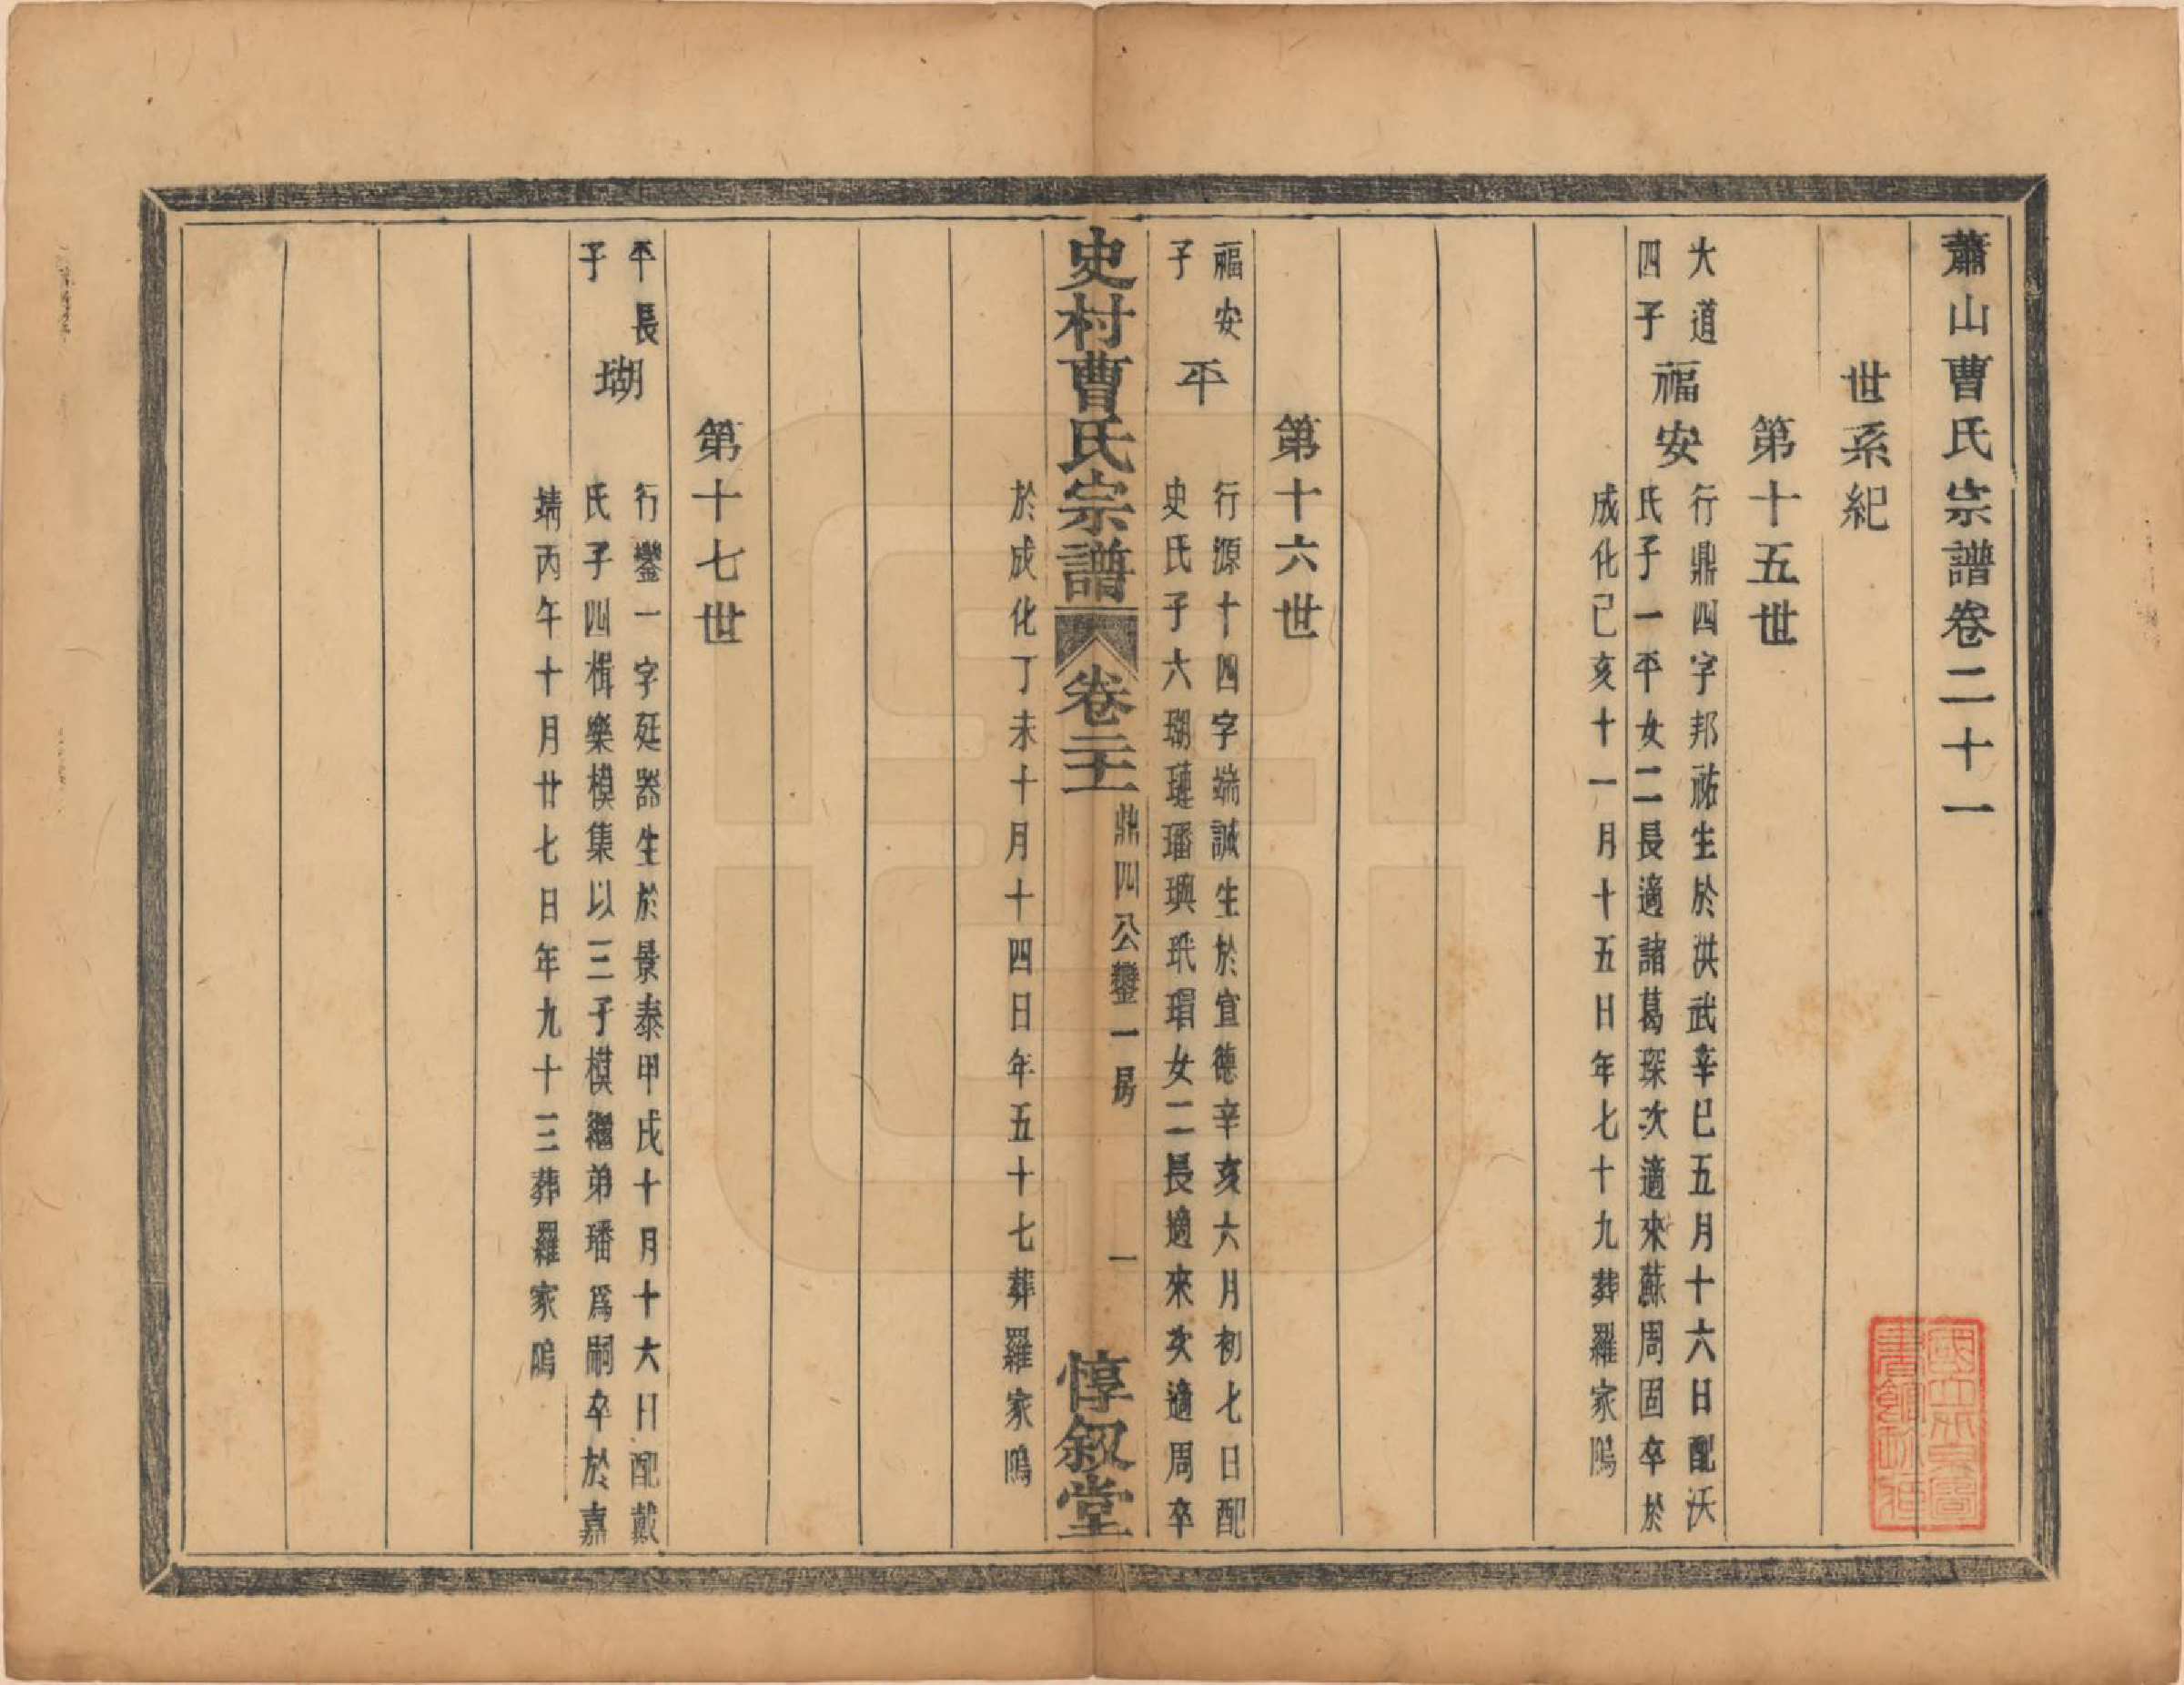 蕭山曹氏宗譜卷二十一
世系紀
第十五世
大道
四子
福安
行鼎四字邦祐生於洪武辛巳五月十六日配沃
氏子一平女二長適諸葛琛次適來蘇周固卒於
成化己亥十一月十五日年七十九葬羅家塢
第十六世
福安
子
平
行源十四字端誠生於宣德辛亥六月初七日配
史氏子六瑚璉璠璵玳瑁女二長適來次適周卒
於成化丁未十月十四日年五十七葬羅家塢
史村曹氏宗譜
卷二十一
鼎四公鑾一房
一
惇叙堂
第十七世
平長
子
瑚
行鑾一字廷器生於景泰甲戌十月十六日配戴
氏子四楫樂模集以三子模繼弟璠爲嗣卒於嘉
靖丙午十月廿七日年九十三葬羅家塢